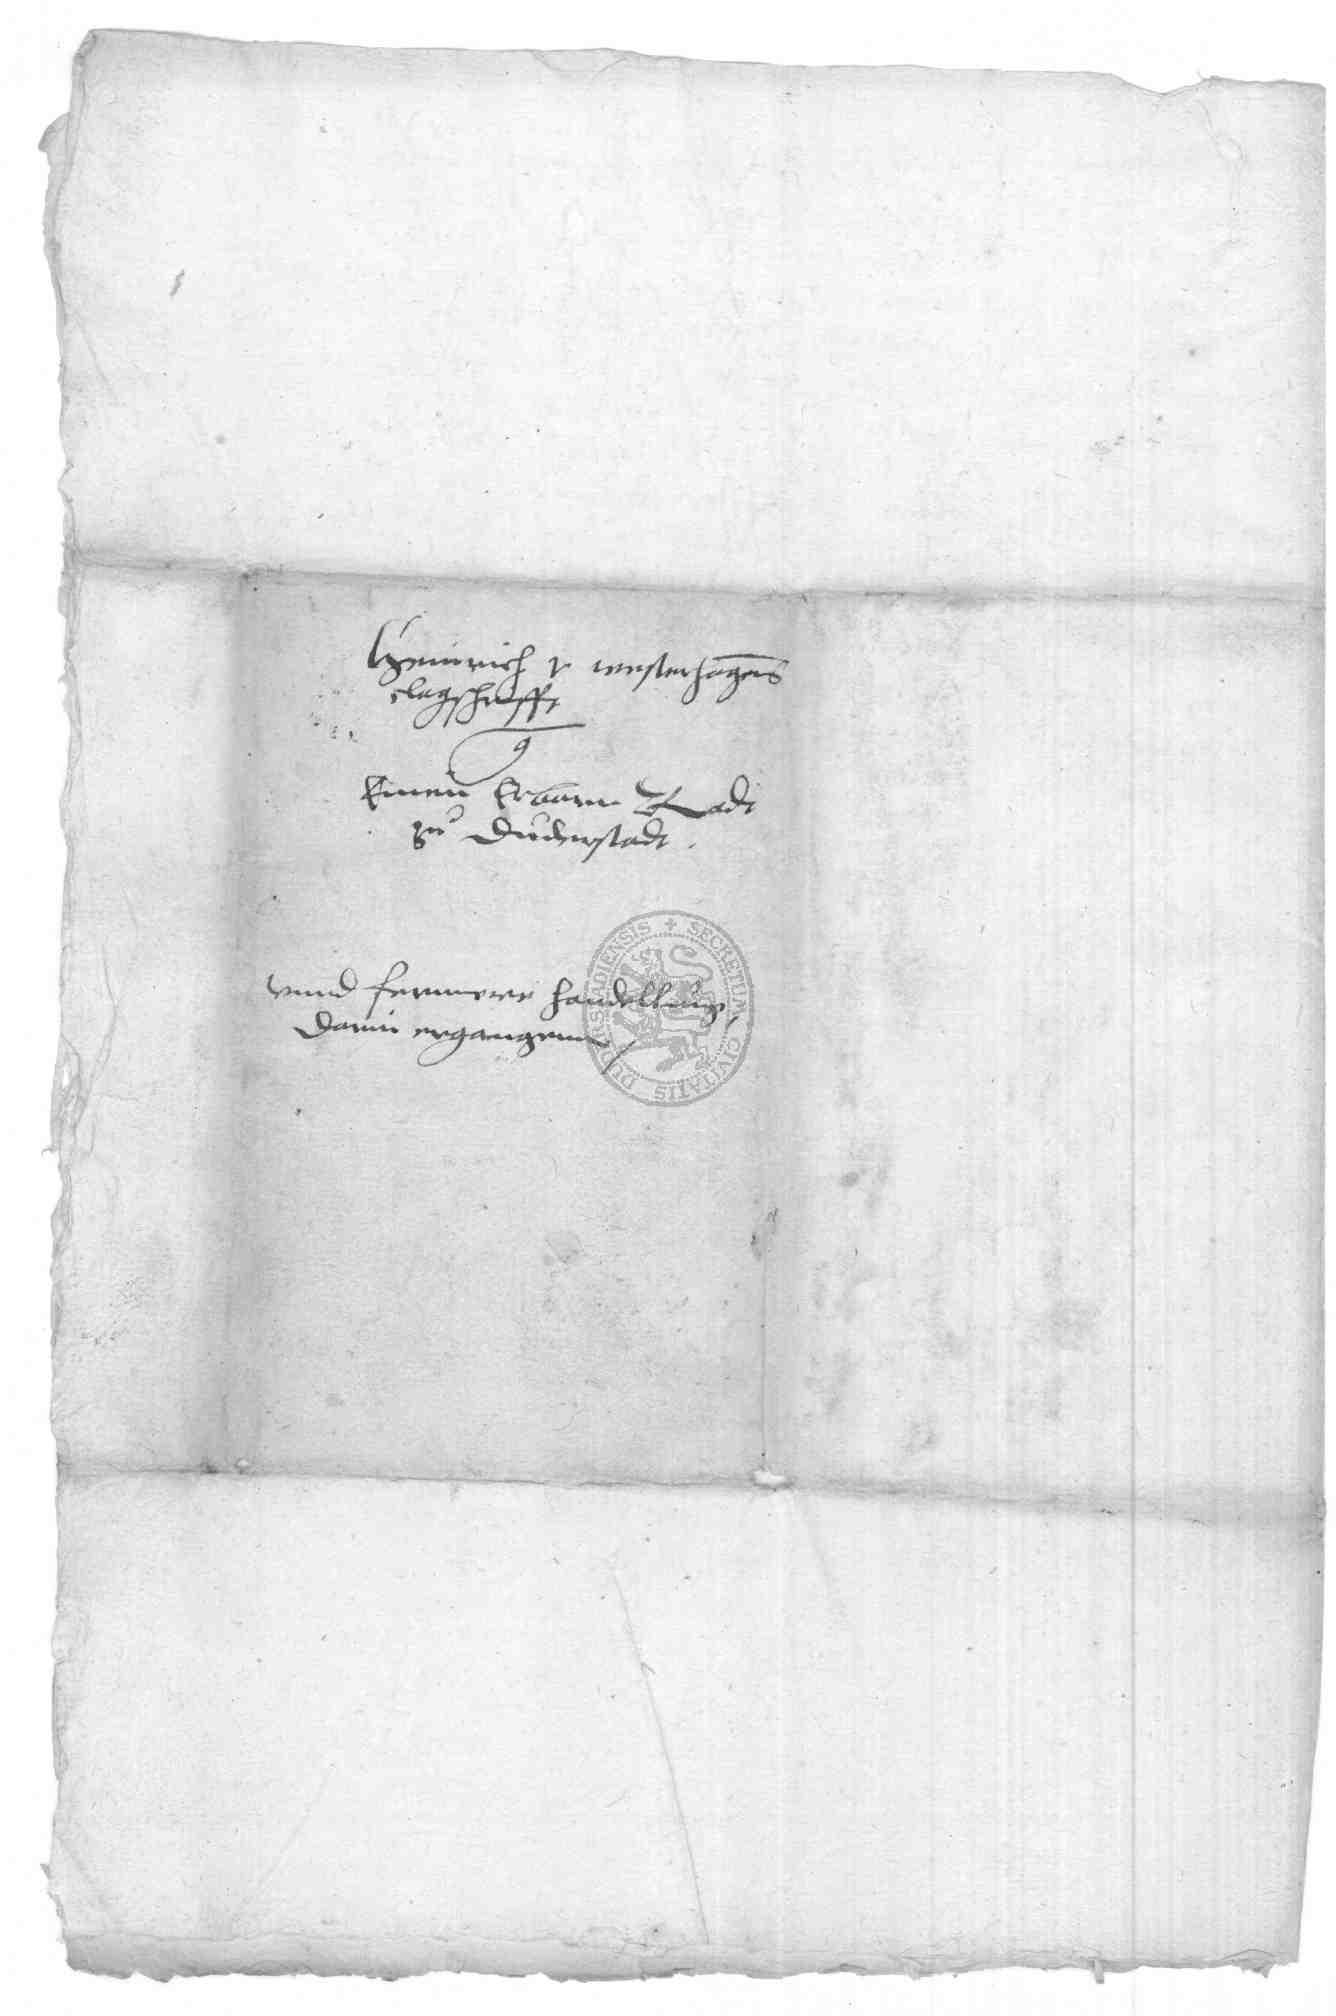 Heinrich v westerhagens
clagschrifft
g
Einem Erbarn Radt
zu Duderstadt.
vnnd fernnere handellung,
darin ergangenn /
SECRETUM CIVITATIS DUDERSTADIENSIS